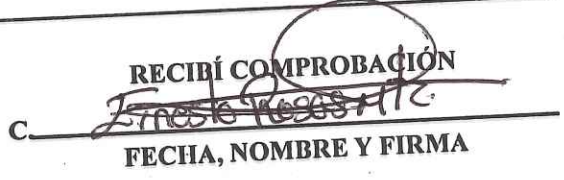 RECIBÍ COMPROBACIÓN
C. Ernesto Rosas
FECHA, NOMBRE Y FIRMA